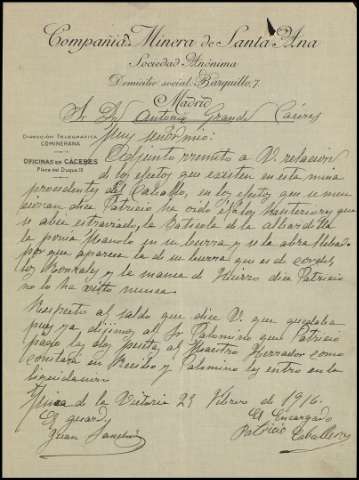 Compañía Minera de Santa Ana
Sociedad Anónima
Domicilio social: Barquillo, 7.
Madrid
DIRECCIÓN TELEGRÁFICA
COMINERANA
OFICINAS EN CÁCERES
Plaza del Duque, 13
S. D. Antonio Grande Cáceres
Muy señor mio:
Adjunto remito a V. relacion
de los efectos que existen en esta mina
procedentes del Calcaño, en los efectos que
dice Patricio ha oido a los anteriores que
se abia estraviado, la Baticola de la albardilla
la ponia Manolo en su burra y se la abra llebado
por que aparece la de su burra que es de cordel,
los Morrales y la manea de Hierro dice Patricio
no los ha visto nunca.
Respecto al saldo que dice V. que quedaba
pues ya dijimos al Sr Palomino que Patricio
pago las dos puestas al Maestro Herrador como
constará en Recibo y Palomino las entro en la
liquidacion
Mina de la Victoria 23 Febrero de 1916.
El guarda El Encargado
Juan Sanchez Patricio Caballero